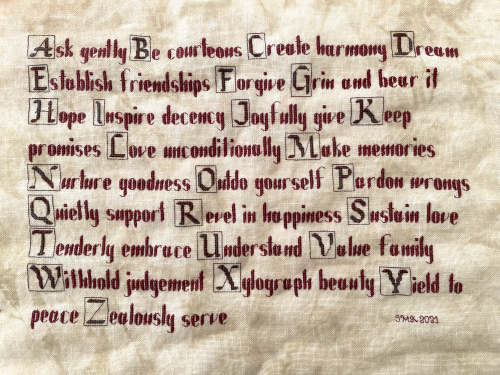 Ask gently Be courteous Create harmony Dream
Establish friendships Forgive Grin and bear it
Hope Inspire decency Joyfully give Keep
promises Love unconditionally Make memories
Nurture goodness Outdo yourself Pardon wrongs
Quietly support Revel in happiness Sustain love
Tenderly embrace Understand Value family
Withhold judgement Xylograph beauty Yield to
peace Zealously serve
SMK 2021